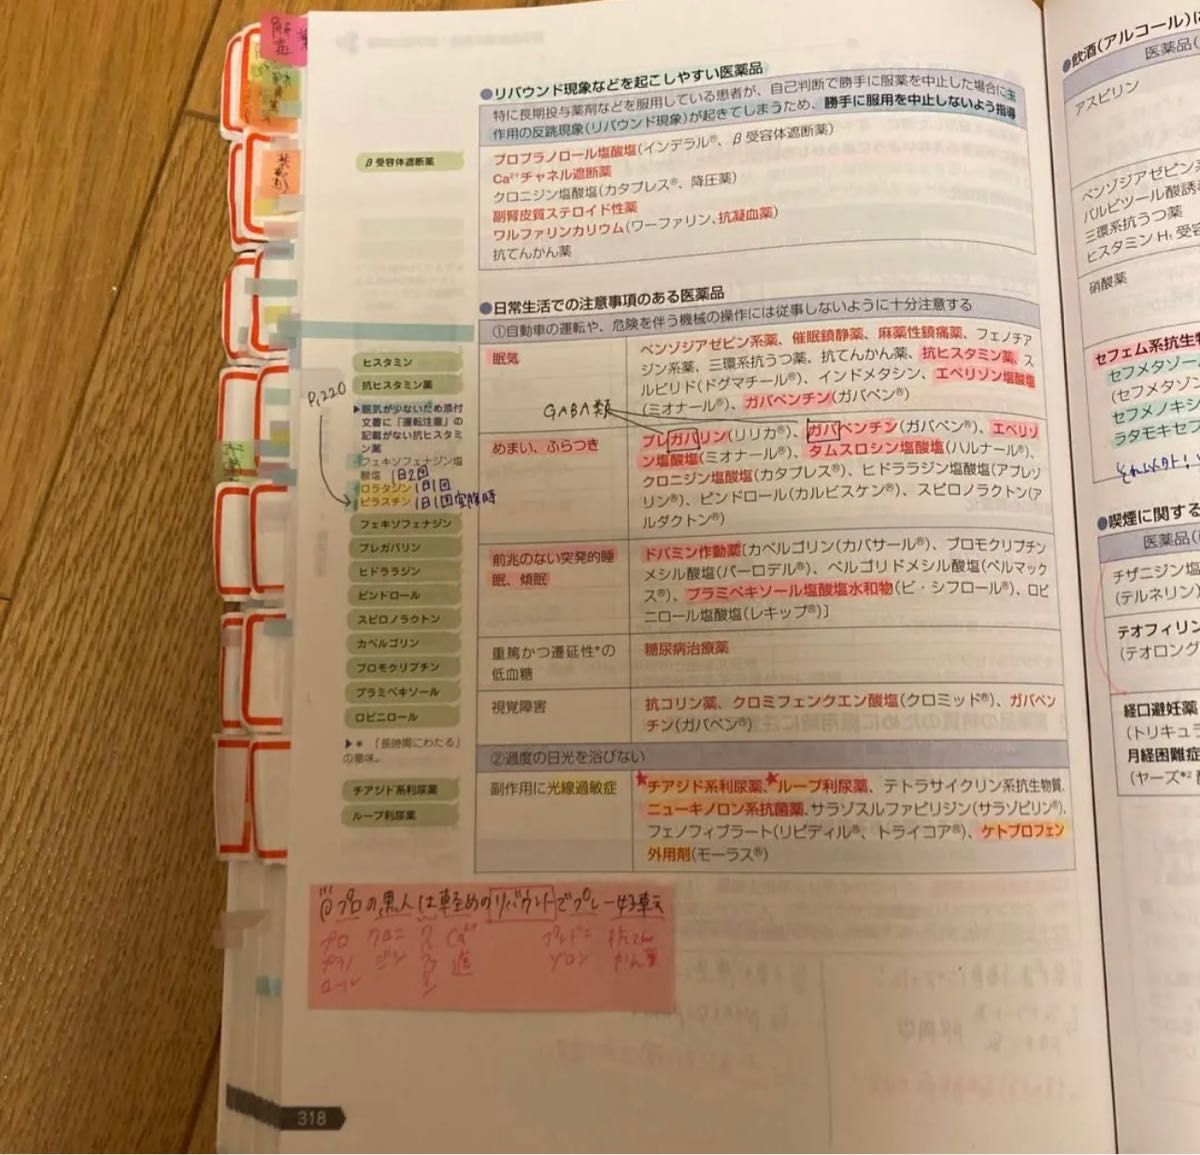 解毒
薬
禁忌
●リバウンド現象などを起こしやすい医薬品
特に長期投与薬剤などを服用している患者が、自己判断で勝手に服薬を中止した場合に主
作用の反跳現象(リバウンド現象)が起きてしまうため、勝手に服用を中止しないよう指導
β受容体遮断薬
プロプラノロール塩酸塩(インデラル®、β受容体遮断薬)
Ca²⁺チャネル遮断薬
クロニジン塩酸塩(カタプレス®、降圧薬)
副腎皮質ステロイド性薬
ワルファリンカリウム(ワーファリン、抗凝血薬)
抗てんかん薬
●日常生活での注意事項のある医薬品
①自動車の運転や、危険を伴う機械の操作には従事しないように十分注意する
眠気
ベンゾジアゼピン系薬、催眠鎮静薬、麻薬性鎮痛薬、フェノチア
ジン系薬、三環系抗うつ薬、抗てんかん薬、抗ヒスタミン薬、ス
ルピリド(ドグマチール®)、インドメタシン、エペリゾン塩酸塩
(ミオナール®)、ガバペンチン(ガバペン®)
GABA類
めまい、ふらつき
プレガバリン(リリカ®)、ガバペンチン(ガバペン®)、エペリゾ
ン塩酸塩(ミオナール®)、タムスロシン塩酸塩(ハルナール®)、
クロニジン塩酸塩(カタプレス®)、ヒドララジン塩酸塩(アプレゾ
リン®)、ピンドロール(カルビスケン®)、スピロノラクトン(ア
ルダクトン®)
前兆のない突発的睡
眠、傾眠
ドパミン作動薬〔カベルゴリン(カバサール®)、ブロモクリプチン
メシル酸塩(パーロデル®)、ペルゴリドメシル酸塩(ペルマック
ス®)、プラミペキソール塩酸塩水和物(ビ・シフロール®)、ロピ
ニロール塩酸塩(レキップ®)〕
重篤かつ遷延性*の
低血糖
糖尿病治療薬
視覚障害
抗コリン薬、クロミフェンクエン酸塩(クロミッド®)、ガバペン
チン(ガバペン®)
②過度の日光を浴びない
副作用に光線過敏症
★チアジド系利尿薬、★ループ利尿薬、テトラサイクリン系抗生物質、
ニューキノロン系抗菌薬、サラゾスルファピリジン(サラゾピリン®)、
フェノフィブラート(リピディル®、トライコア®)、ケトプロフェン
外用剤(モーラス®)
ヒスタミン
抗ヒスタミン薬
P,220
▶眠気が少ないため添付
文書に「運転注意」の
記載がない抗ヒスタミ
ン薬
フェキソフェナジン塩
酸塩 1日2回
ロラタジン 1日1回
ビラスチン 1日1回空腹時
フェキソフェナジン
プレガバリン
ヒドララジン
ピンドロール
スピロノラクトン
カベルゴリン
ブロモクリプチン
プラミペキソール
ロピニロール
▶* 「長時間にわたる」
の意味。
チアジド系利尿薬
ループ利尿薬
プロの黒人は軽めのリバウンドでプレー好転
プロ クロニ ワ Ca²⁺ プレドニ 抗てん
プラノ ジン ル 遮 ゾロン かん薬
ロール
318
●飲酒(アルコール)に
医薬品(
アスピリン
ベンゾジアゼピン系
バルビツール酸誘
三環系抗うつ薬
ヒスタミンH₁受容
硝酸薬
セフェム系抗生物
セフメタゾー
(セフメタゾン
セフメノキシ
ラタモキセフ
それ以外!
●喫煙に関する
医薬品(
チザニジン塩
(テルネリン)
テオフィリン
(テオロング
経口避妊薬
(トリキュラ
月経困難症
(ヤーズ*²